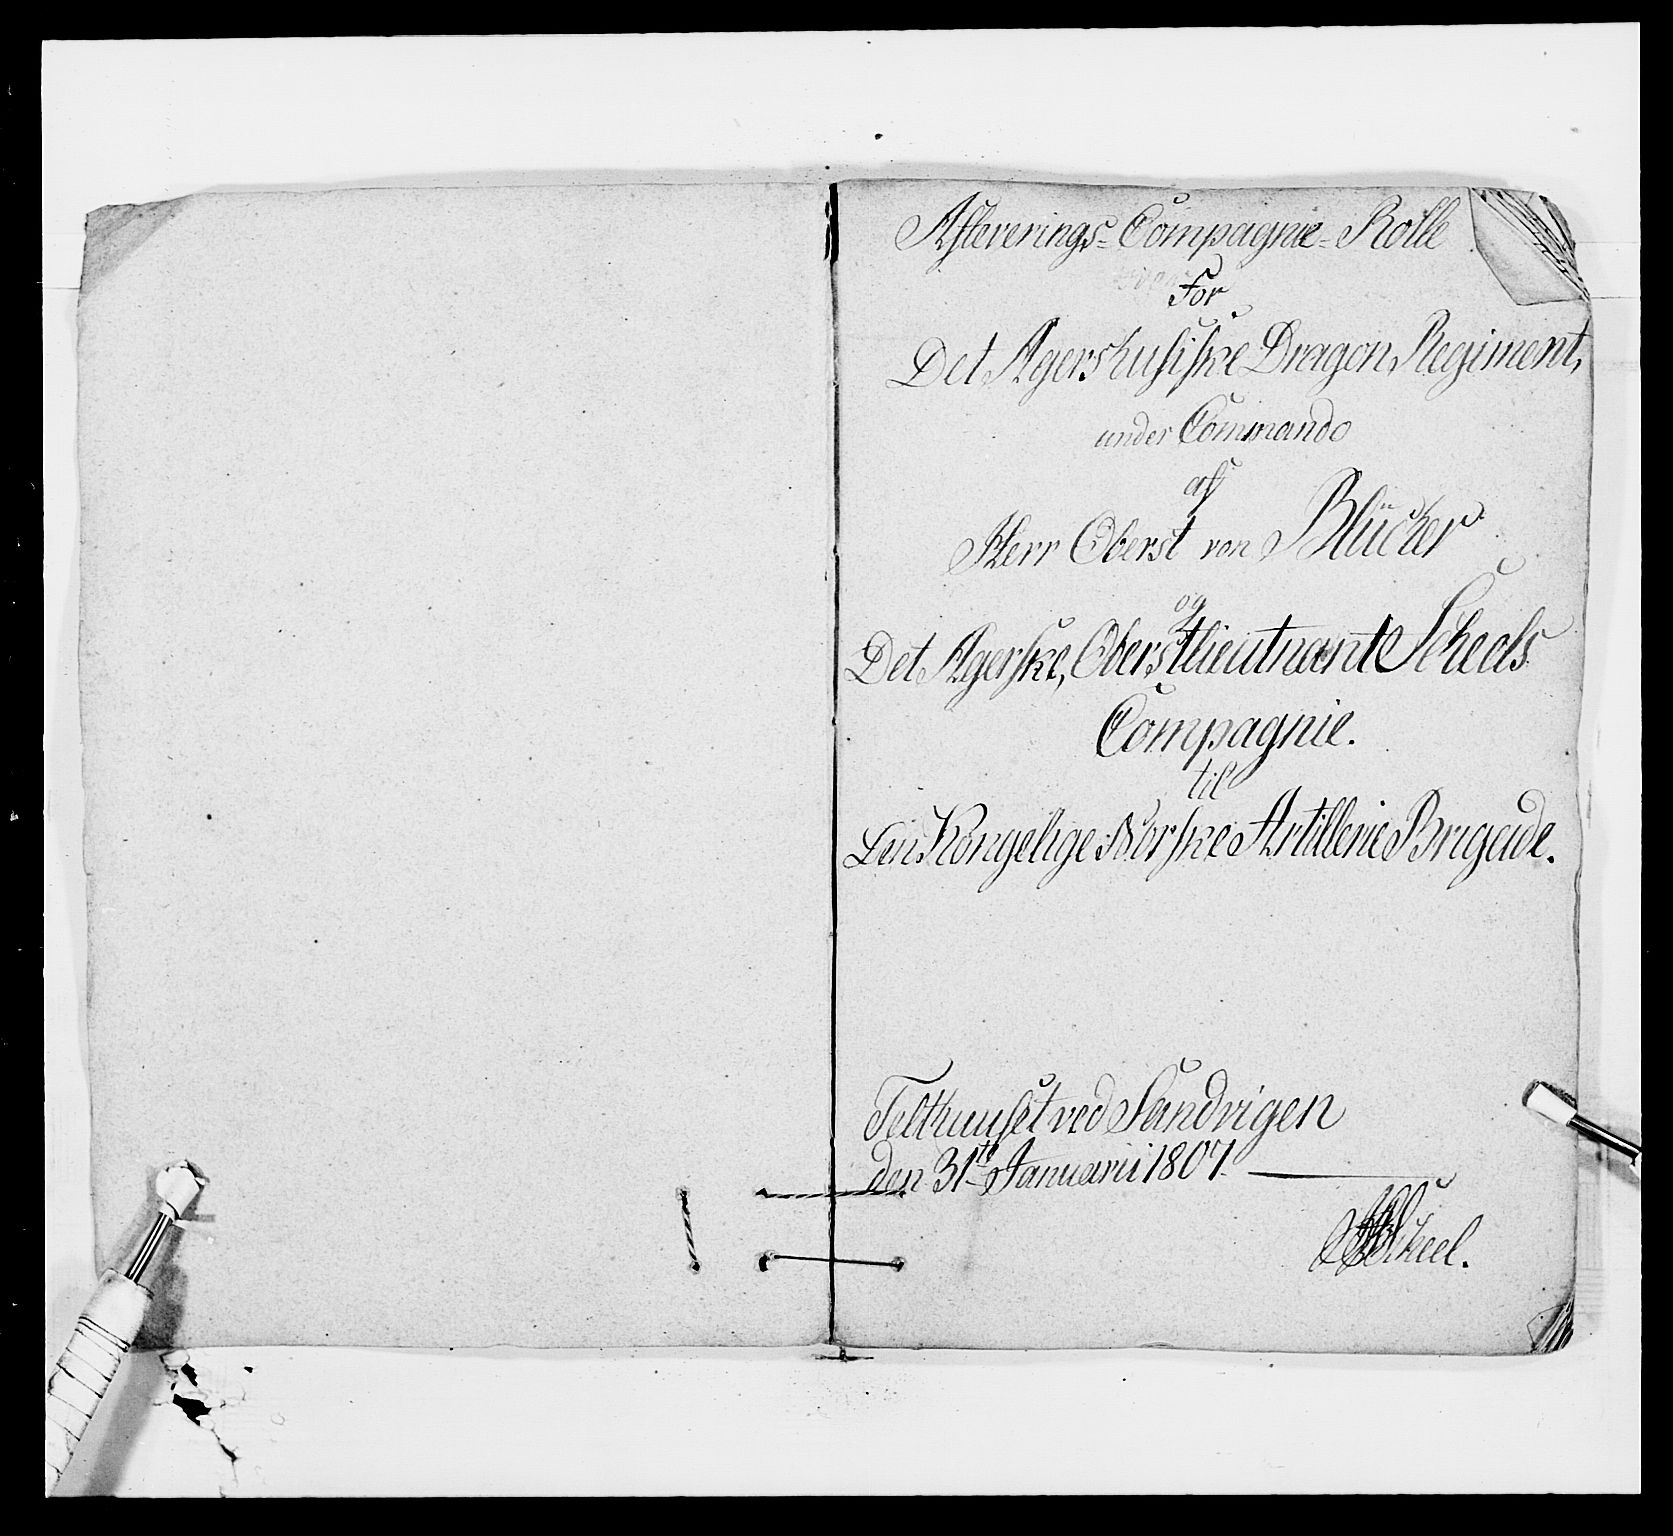 Afleverings-Compagnie-Rolle
For
Det Agershusiske Dragon Regiment,
under Commando
af
Herr Oberst von Blücher
og
Det Agerske, Oberstlieutnant Scheels
Compagnie.
til
Den Kongelige Norske Artillerie Brigade.
Telthuuset ved Sandvigen
den 31te Januarii 1807.
Scheel.